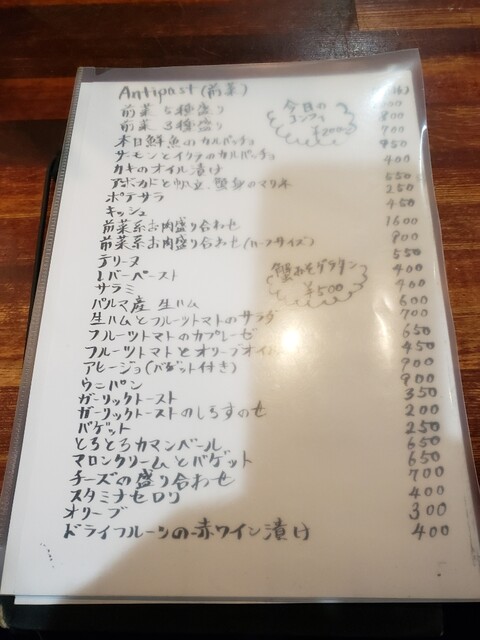 Antipast (前菜)
前菜 5種盛り
前菜 3種盛り 800
本日鮮魚のカルパッチョ 700
サーモンとイクラのカルパッチョ 750
カキのオイル漬け 400
アボカドと帆立、蟹身のマリネ 550
ポテサラ 250
キッシュ 450
前菜系お肉盛り合わせ 1600
前菜系お肉盛り合わせ(ハーフサイズ) 800
テリーヌ 550
レバーペースト 400
サラミ 400
パルマ産 生ハム 600
生ハムとフルーツトマトのサラダ 700
フルーツトマトのカプレーゼ 650
フルーツトマトとオリーブオイル 450
アヒージョ(バゲット付き) 900
ウニパン 900
ガーリックトースト 350
ガーリックトーストのしらすのせ 200
バゲット 250
とろとろカマンベール 650
マロンクリームとバゲット 650
チーズの盛り合わせ 700
スタミナセロリ 400
オリーブ 300
ドライフルーツの赤ワイン漬け 400
今日の
コンフィ
蟹みそグラタン
¥500